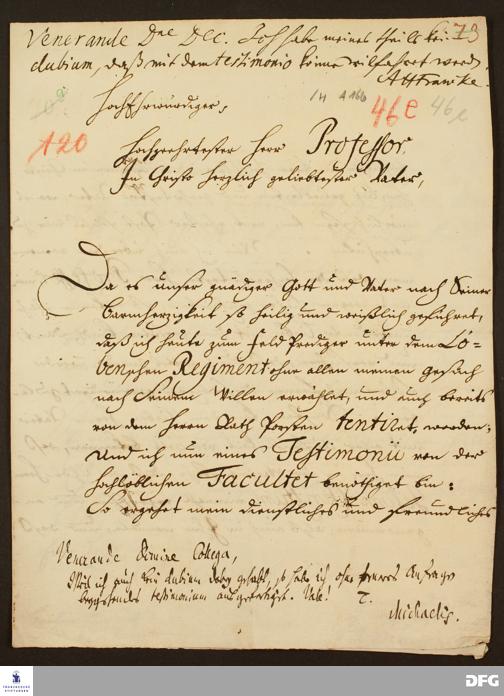 Venerande Dne Dec. Ich habe meines theils kein 73
dubium, daß mit dem testimonio könne wilfahret werden.
AHFrancke
14 A 166
46e 46e
HochEhrwürdiger,
A20
Hochgeehrtester Herr Professor,
In Christo herzlich geliebtester Vater,
Da es unser gnädiger Gott und Vater nach Seiner
Barmherzigkeit so heilig und weißlich geführet,
daß ich heute zum Feld Prediger unter dem Lö-
benschen Regiment ohne allen meinen gesuch
nach Seinem Willen erwählet, und auch bereits
von dem Herrn Rath Porsten tentiret, worden;
Und ich nun eines Testimonii von der
hochlöblichen Facultet benöthiget bin:
So ergehet mein dienstliches und freundliches
Venerande Domine Collega,
Weil ich auch kein dubium dabey gehabt, so habe ich ohne ferneres Anfrage
beygehendes testimonium ausgefertiget. Vale!
Michaelis.
FRANCKESCHE
STIFTUNGEN
DFG